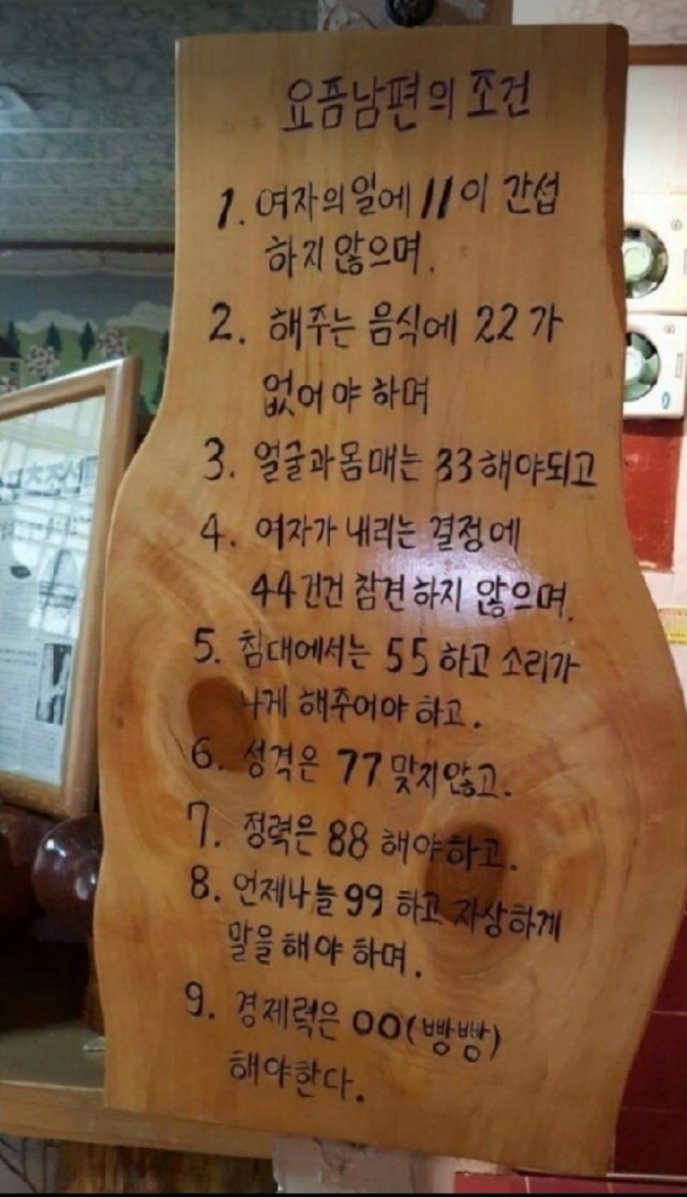 요즘남편의 조건
1. 여자의일에 11이 간섭
하지 않으며.
2. 해주는 음식에 22가
없어야 하며
3. 얼굴과몸매는 33해야되고
4. 여자가 내리는 결정에
44건건 참견하지 않으며.
5. 침대에서는 55하고 소리가
나게 해주어야 하고.
6. 성격은 77맞지않고.
7. 정력은 88해야하고.
8. 언제나늘 99하고 자상하게
말을 해야 하며.
9. 경제력은 00(빵빵)
해야한다.